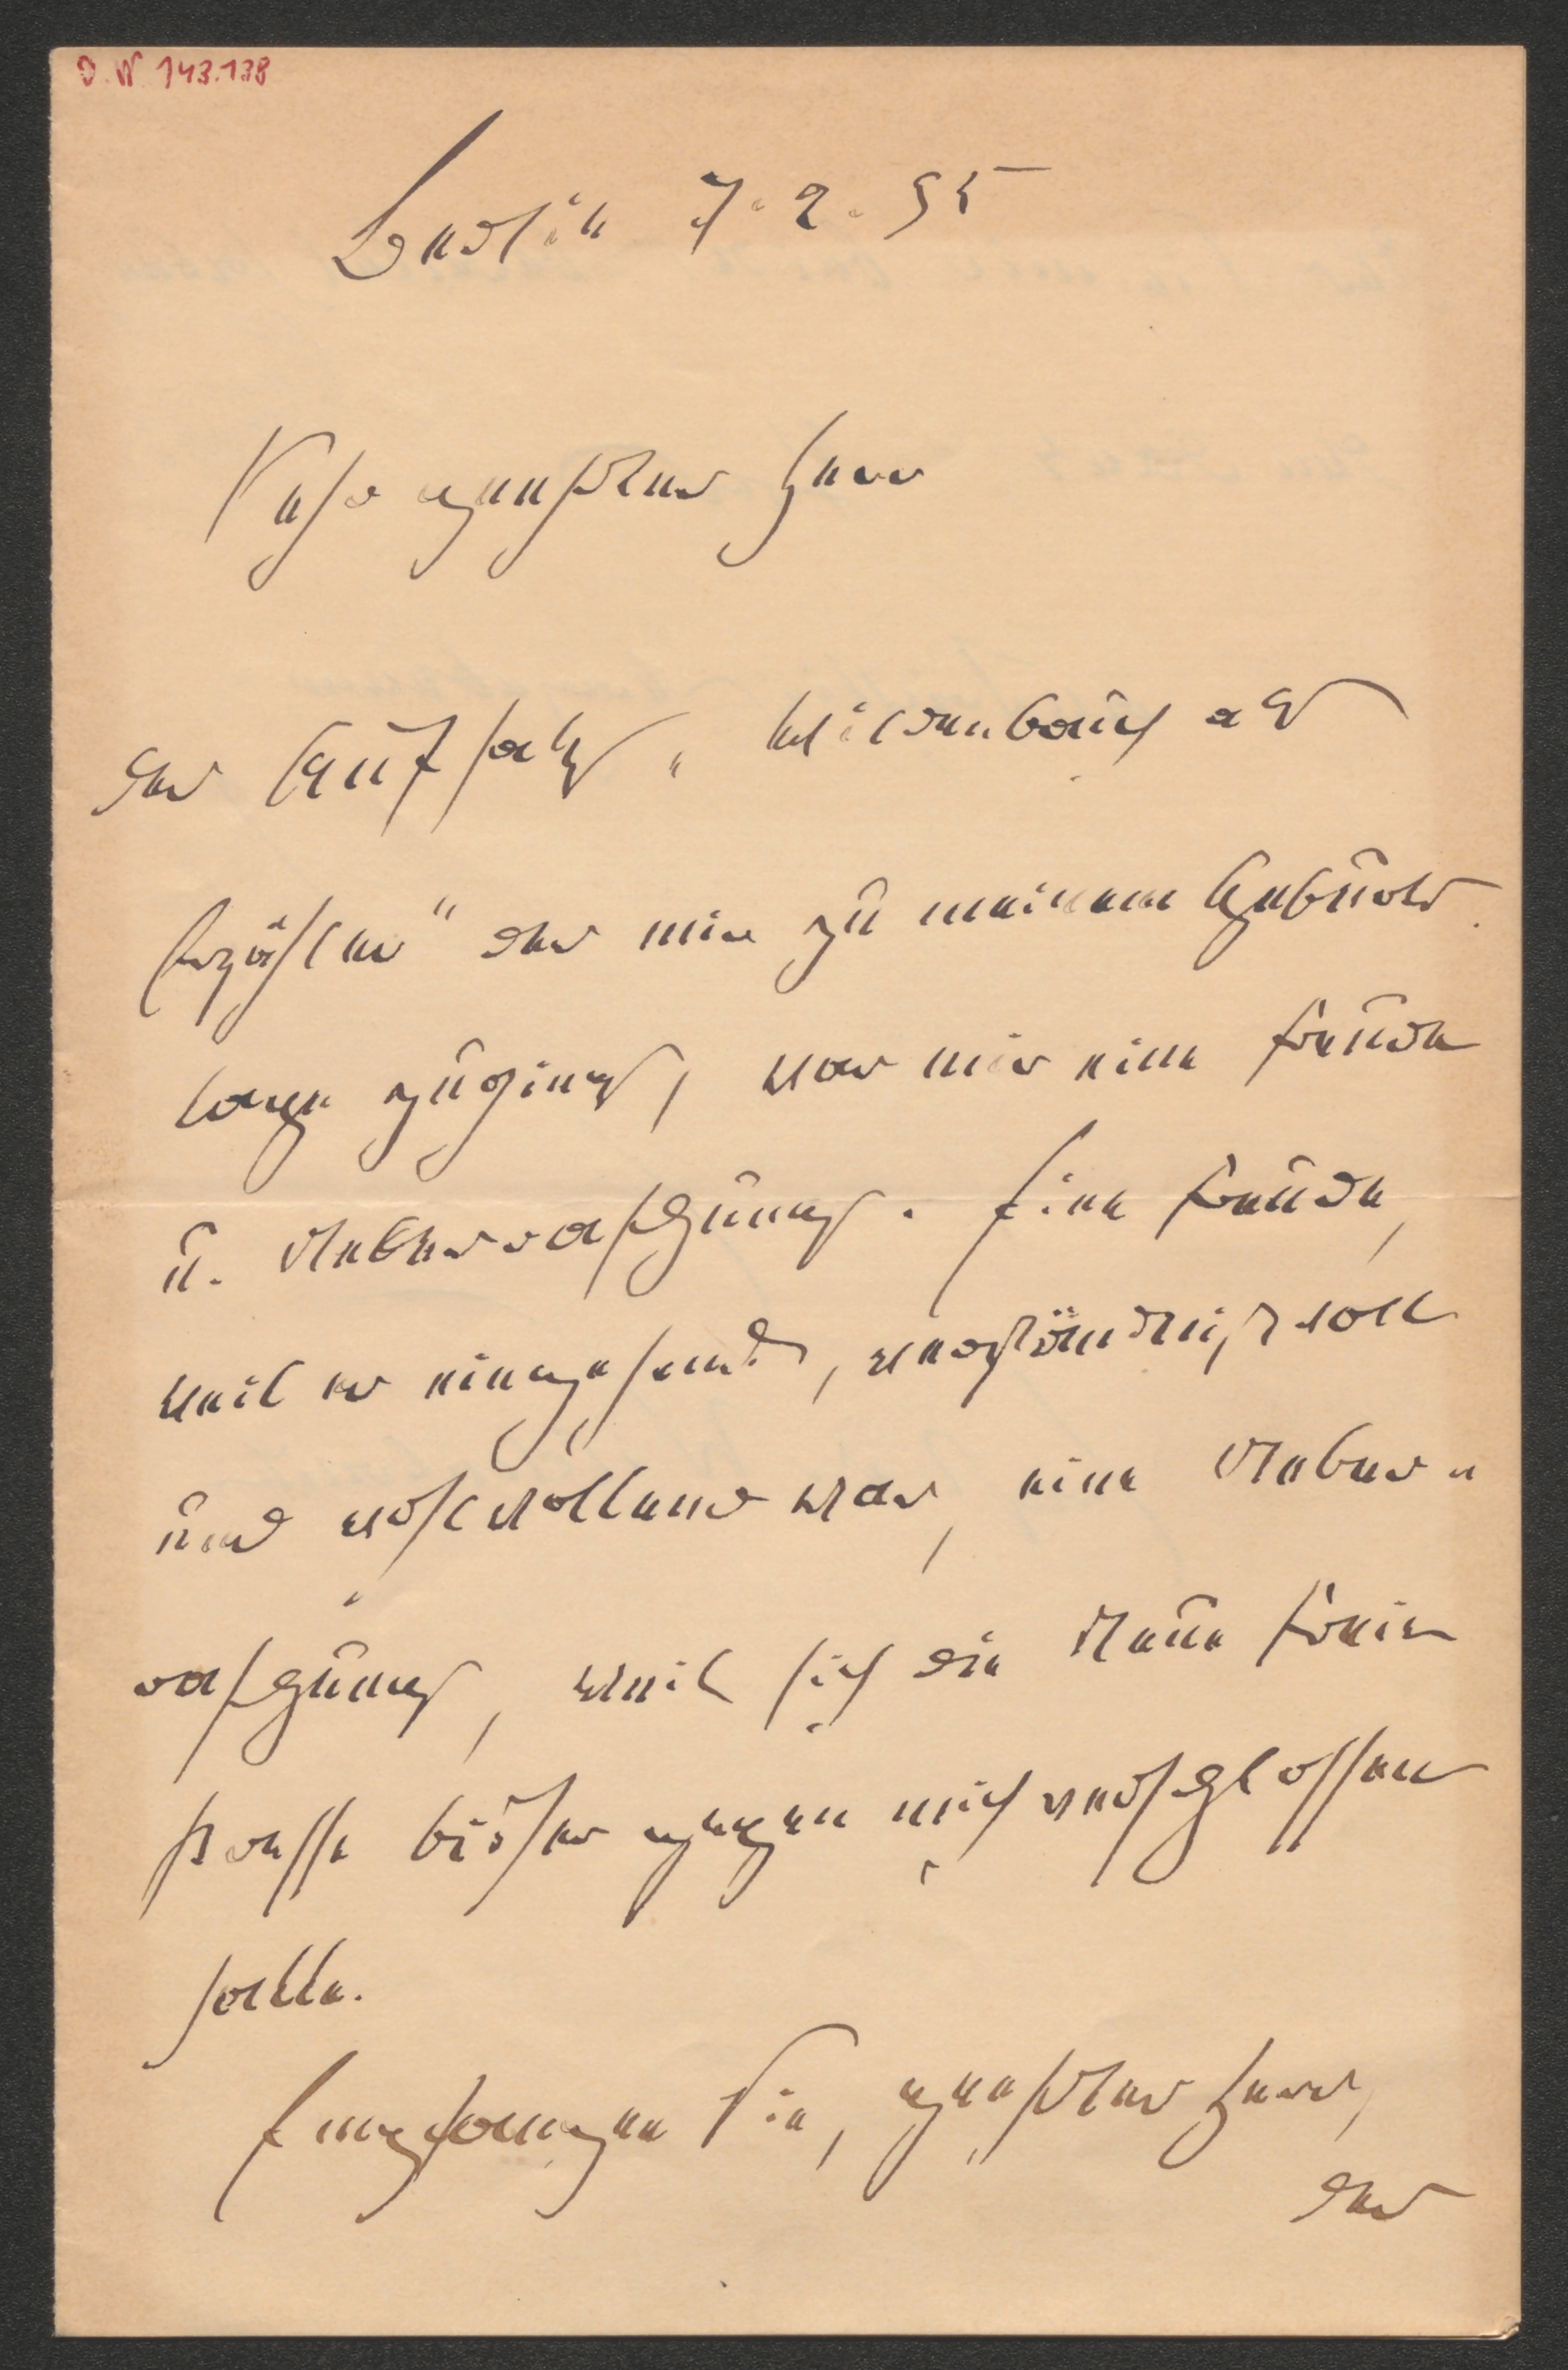 I. N. 143.138
Berlin 7. 2. 95
Sehr geehrter Herr
Der Aufsatz „Wildenbruch als
Erzähler" der mir zu meinem Geburts
tage zuging, war mir eine Freude
u. Ueberraschung. Eine Freude,
weil er eingehend, verständnißvoll
und wohlwollend war, eine Ueber-
raschung, weil sich die Neue Freie
Presse bisher gegen mich verschlossen
hatte.
Empfangen Sie, geehrter Herr,
der